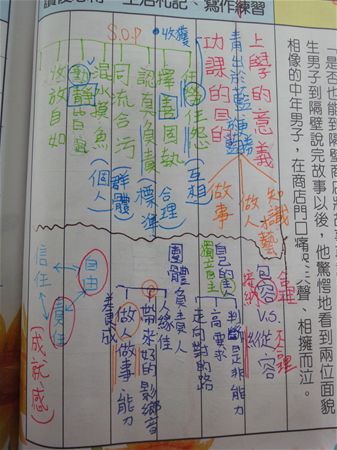 讀後心得、生活札記、寫作練習
一是否也能到隔壁商店將故事
生男子到隔壁說完故事以後，他驚愕地看到兩位面貌
相像的中年男子，在商店門口痛哭三聲、相擁而泣。
上學的意義
知識
才藝
做人
做事
青出於藍
功課的目的
S.O.P
收穫
任勞任怨
(互相)
擇善固執
合理
認真負責
標準
同流合污
(群體)
混水摸魚
(個人)
動靜自如
收放自如
合理
不合理
包容 V.S. 縱容
接納
判斷是非能力
高要求
自己的主人
獨立自主
走向對的路
團體
負責人
人緣佳
帶來好的影響
做人做事能力
養成
自由
責任
信任
(成就感)